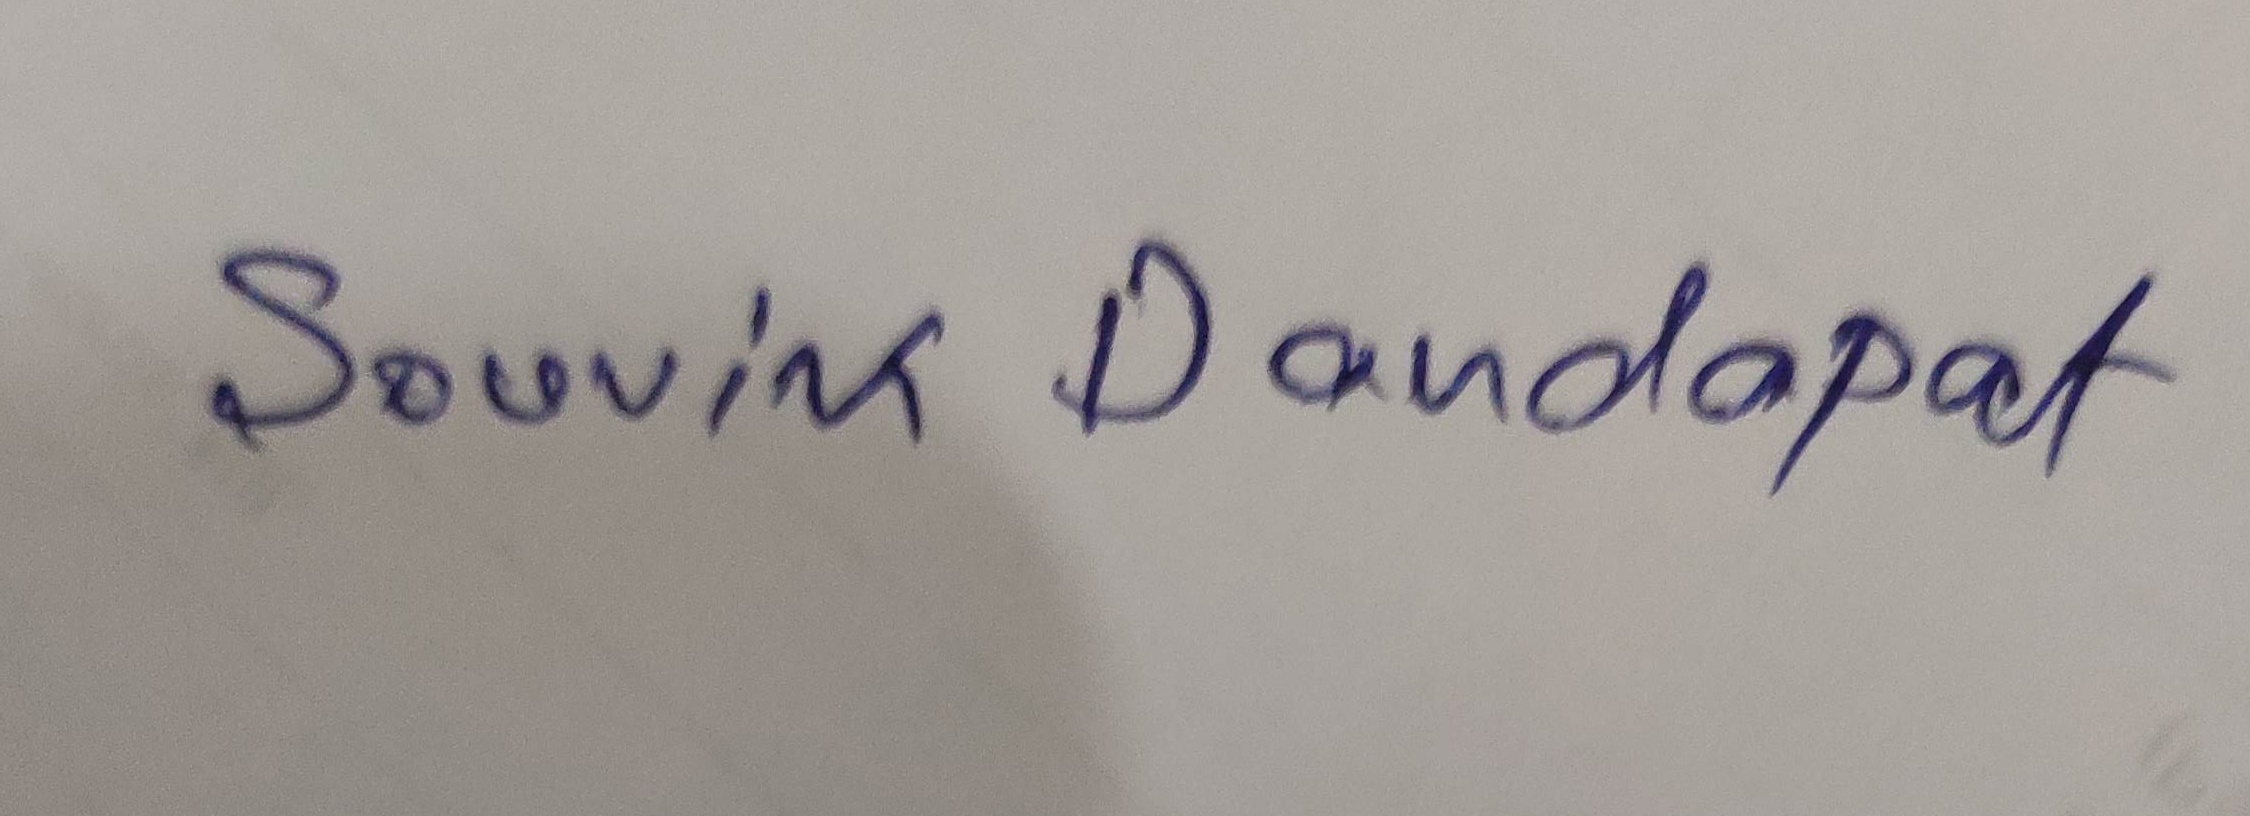 Souvik Dandapat